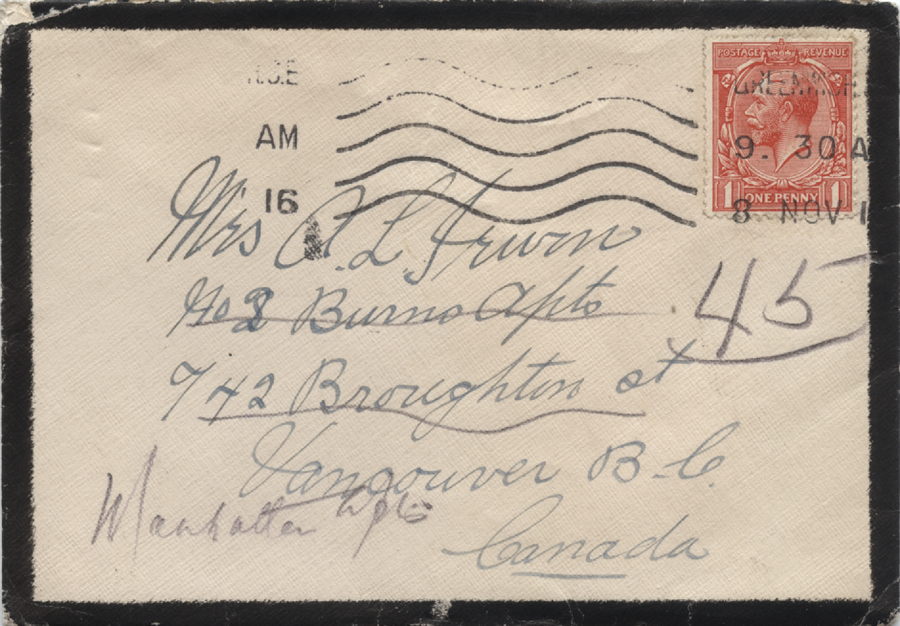 POSTAGE REVENUE
GREENWICH.
9. 30 A
8 NOV 1
1 ONE PENNY 1
AM
16
Mrs A. L. Irwin
No 2 Burns Apts
45
742 Broughton st
Vancouver B.C.
Manhatten Apts
Canada